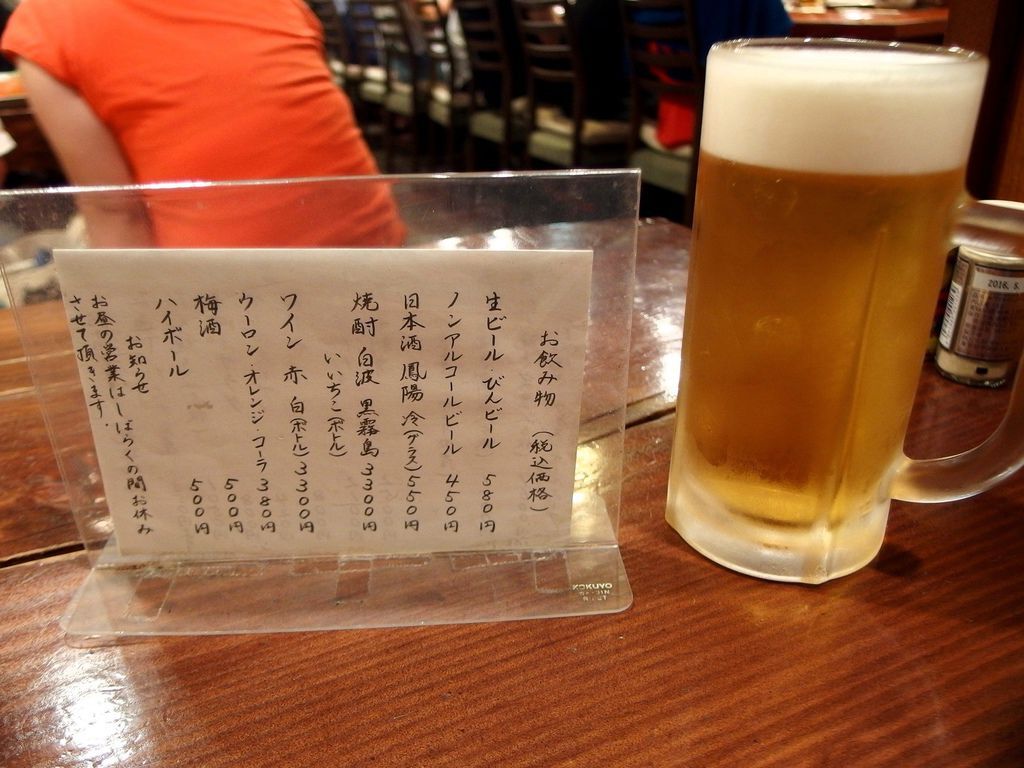 お飲み物 (税込価格)
生ビール・びんビール 580円
ノンアルコールビール 450円
日本酒 鳳陽 冷(グラス)550円
焼酎 白波 黒霧島 3300円
いいちこ(ボトル)
ワイン 赤 白(ボトル)3300円
ウーロン・オレンジ・コーラ 380円
梅酒 500円
ハイボール 500円
お知らせ
お昼の営業はしばらくの間お休み
させて頂きます.
KOKUYO
2016. 5.